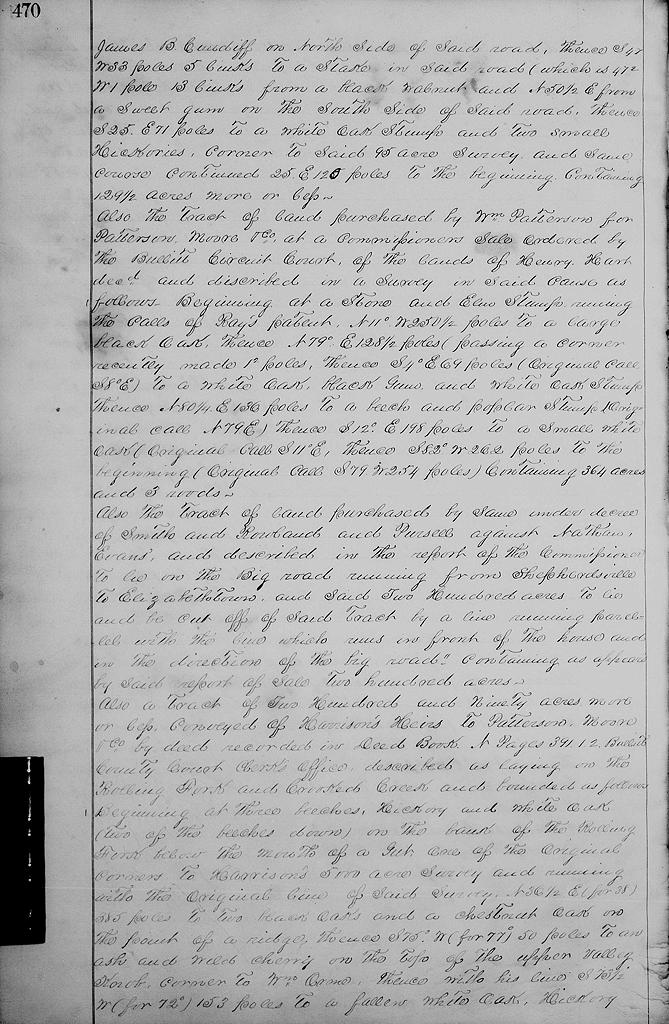 470
James B. Cundiff on North Side of Said road, Thence S 47
W 33 poles 5 links To a Stake in Said road (which is 47 2
W 1 pole 13 links from a black walnut and N 50 1/2 E from
a Sweet gum on the South Side of Said road, Thence
S 25. E 71 poles To a white Oak Stump and Two Small
Hickories, Corner To Said 95 acre Survey, and Same
course Continued 25 E 125 poles To the beginning, Containing
129 1/2 acres more or less~
Also The Tract of land purchased by Wm Patterson for
Patterson, Moore & Co, at a Commissioners Sale ordered by
The Bullitt Circuit Court, of The lands of Henry Hart
decd and discribed in a Survey in Said Cause as
follows Beginning at a Stone and Elm Stump running
The Calls of Ray's patent, N 11° W 250 1/2 poles To a large
black Oak, Thence N 79° E 128 1/2 poles (passing a Corner
recently made 1° poles, Thence S 4° E 69 poles (Original Call
S 8° E) To a white Oak, black Gum, and white Oak Stump
Thence N 80 1/4 E 136 poles To a beech and poplar Stump (Orig-
inal call N 79 E) Thence S 12° E 198 poles To a Small white
Oak (Original Call S 11° E, Thence S 82° W 262 poles To The
beginning (Original Call S 79 W 254 poles) Containing 364 acres
and 3 roods~
Also The Tract of land purchased by Same under decree
of Smith and Rowland and Pursell against Nathan
Evans, and described in the report of the Commissioner
To lie on The Big road running from Shepherdsville
To Elizabethtown, and Said Two Hundred acres To lie
and be cut off of Said Tract by a line running paral-
lel with the line which runs in front of the house and
in the direction of the big road" Containing as appears
by Said report of Sale Two hundred acres~
Also a Tract of Two Hundred and Ninety acres more
or less, Conveyed of Harrison's Heirs To Patterson, Moore
& Co by deed recorded in Deed Book N Pages 391 1 2, Bullitt
County Court Clerk's Office, described as laying on the
Rolling Fork and Crooked Creek and bounded as follows
Beginning at three beeches, Hickory and white Oak
(Two of The beeches down) on the bank of the Rolling
Fork below The mouth of a Gut One of the Original
Corners To Harrison's 5000 acre Survey and running
with the Original line of Said Survey, N 36 1/2 E (for 38)
385 poles To Two black Oaks and a Chestnut Oak on
The point of a ridge, Thence S 75° W (for 77°) 50 poles To an
ash and Wild Cherry on the Top of The upper Valley
Knob, Corner To Wm Orme, Thence with his line S 73 1/2
W (for 72°) 153 poles To a fallen white Oak, Hickory